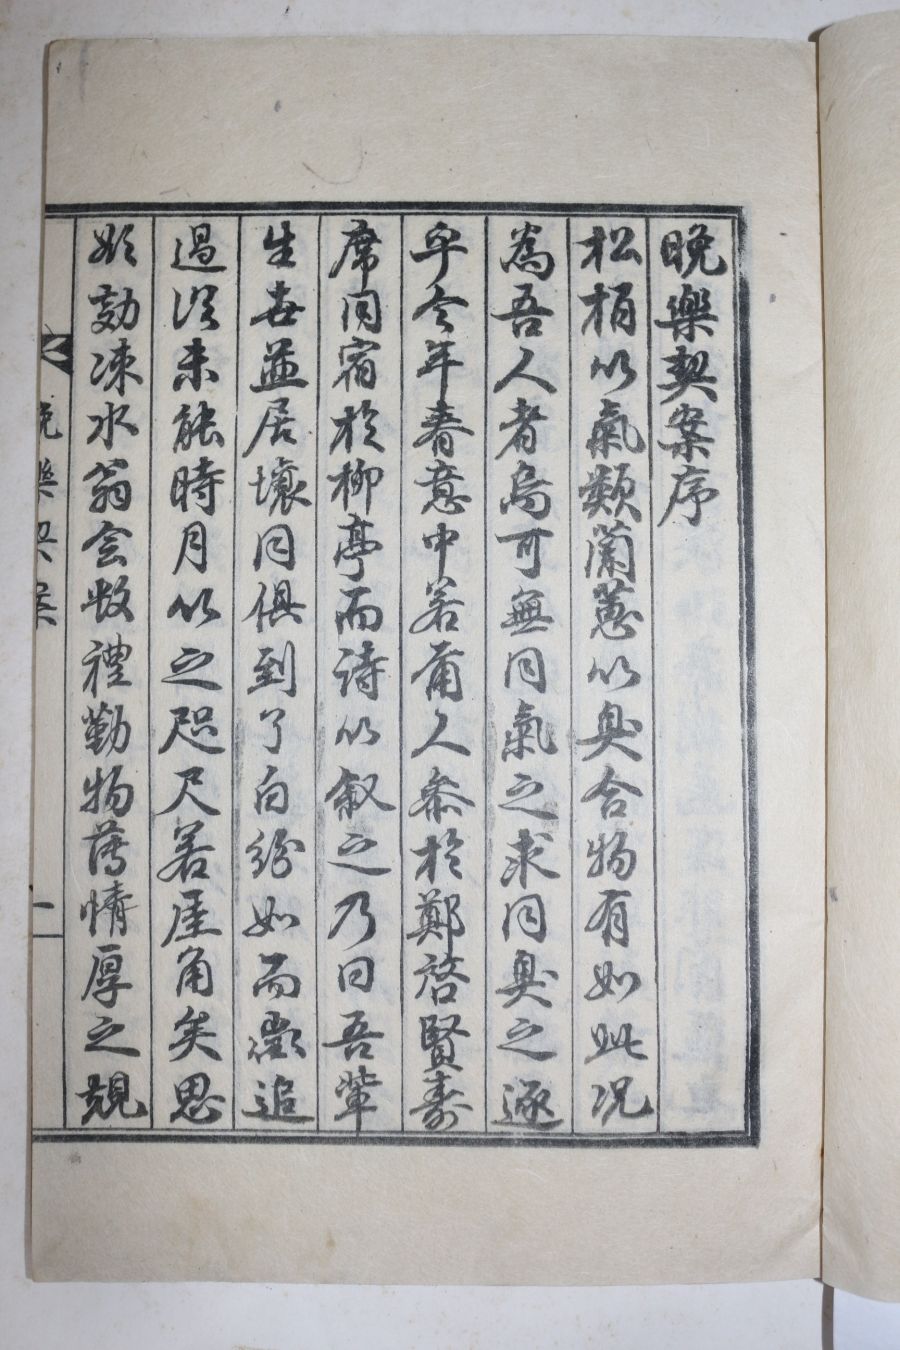 晩樂契案序
松栢以氣類蘭蕙以臭合物有如此况
為吾人者烏可無同氣之求同臭之逐
乎今年春意中若而人參於鄭啓賢壽
席同宿於柳亭而詩以敘之乃曰吾輩
生世並居壤同俱到了白紛如而徵追
過從未能時月以之咫尺若厓角矣思
欲効涑水翁会数禮勤物薄情厚之規
晩樂契案
一